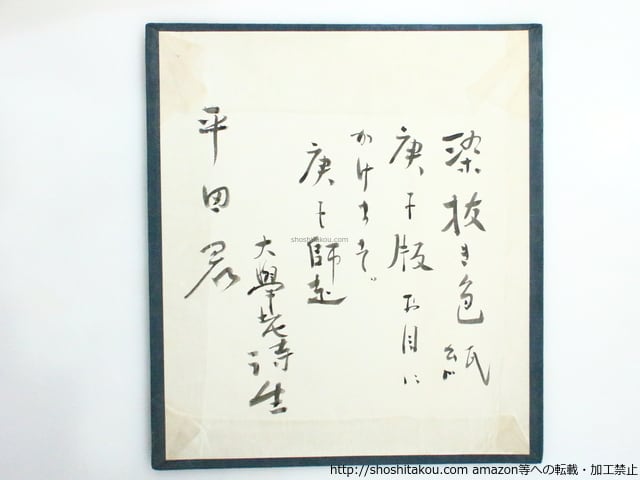 染抜き色紙
庚子版お目に
かけます。
庚子師走
大學老詩生
平田君
shoshitakou.com
http://shoshitakou.com amazon等への転載・加工禁止